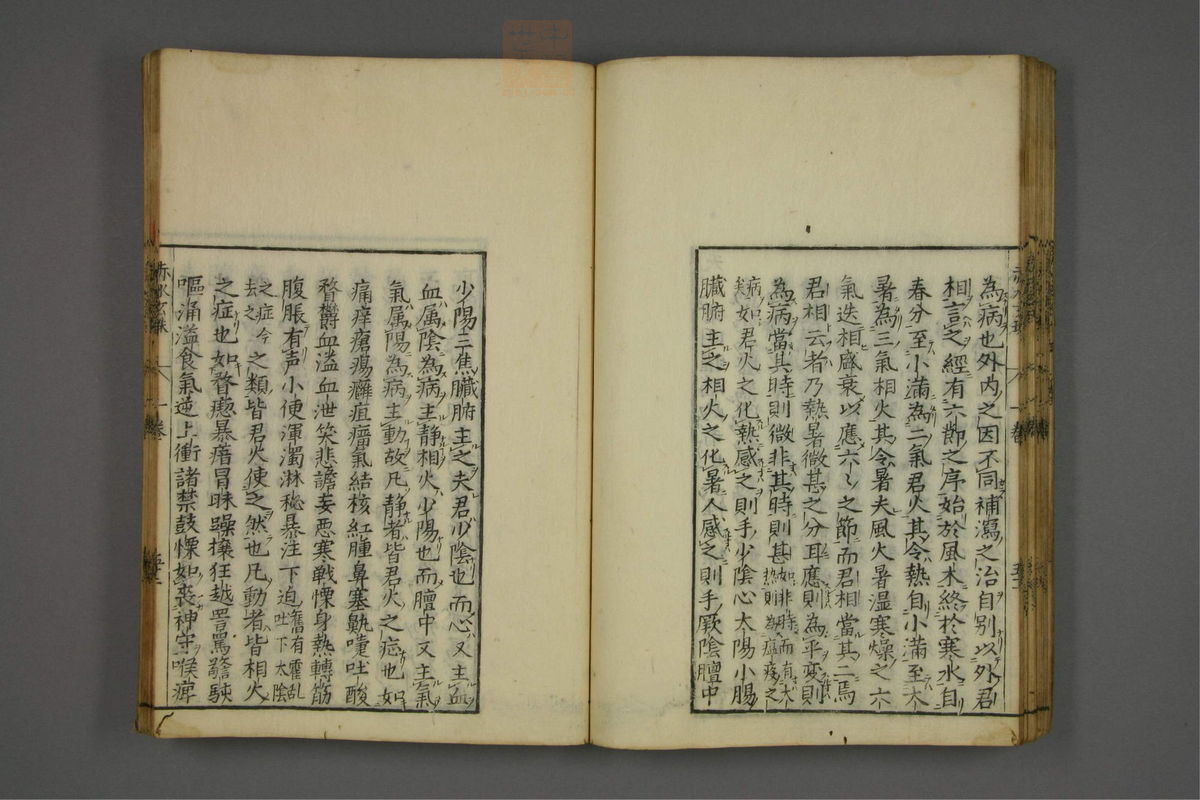 為病也外内之因不同補瀉之治自別以外君
相言之經有六節之序始於風木終於寒水自
春分至小滿為二氣君火其令熱自小滿至大
暑為三氣相火其令暑夫風火暑濕寒燥之六
氣迭相盛衰以應六々之節而君相當其二焉
君相云者乃熱暑微甚之分耳應則為平變則
為病當其時則微非其時則甚如非時而有大熱則為瘟疫之
病矣如君火之化熱感之則手少陰心太陽小腸
臓腑主之相火之化暑人感之則手厥陰膻中
少陽三焦臓腑主之夫君少陰也而心又主血
血属陰為病主静相火少陽也而膻中又主氣
氣属陽為病主動故凡静者皆君火之症也如
痛痒瘡瘍癬疽瘤氣結核紅腫鼻塞鼽嚏吐酸
瞀欝血溢血泄笑悲譫妄悪寒戦慄身熱轉筋
腹脹有声小便渾濁淋秘暴注下迫舊有霍乱吐下太陰
之症今去之之類皆君火使之然也凡動者皆相火
之症也如瞀瘛暴瘖冒昧躁擾狂越罵詈驚駭
嘔涌溢食氣逆上衝諸禁鼓慄如喪神守喉痺
赤水玄珠
一卷